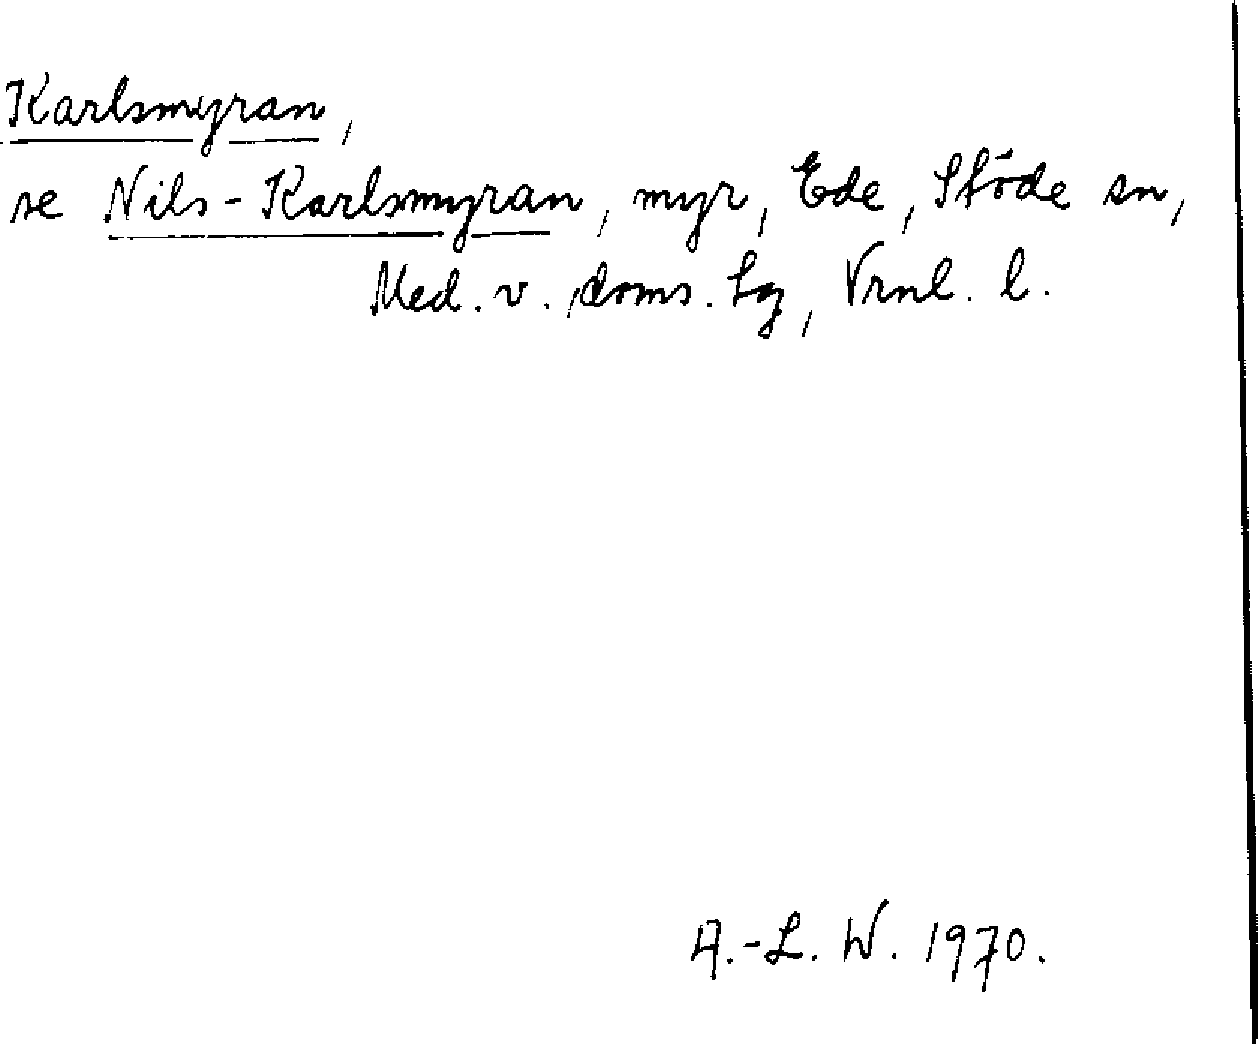 Karlsmyran,
se Nils-Karlsmyran, myr, Ede, Stöde sn,
Med. v. doms. hg, Vrnl. l.
A.-L. W. 1970.